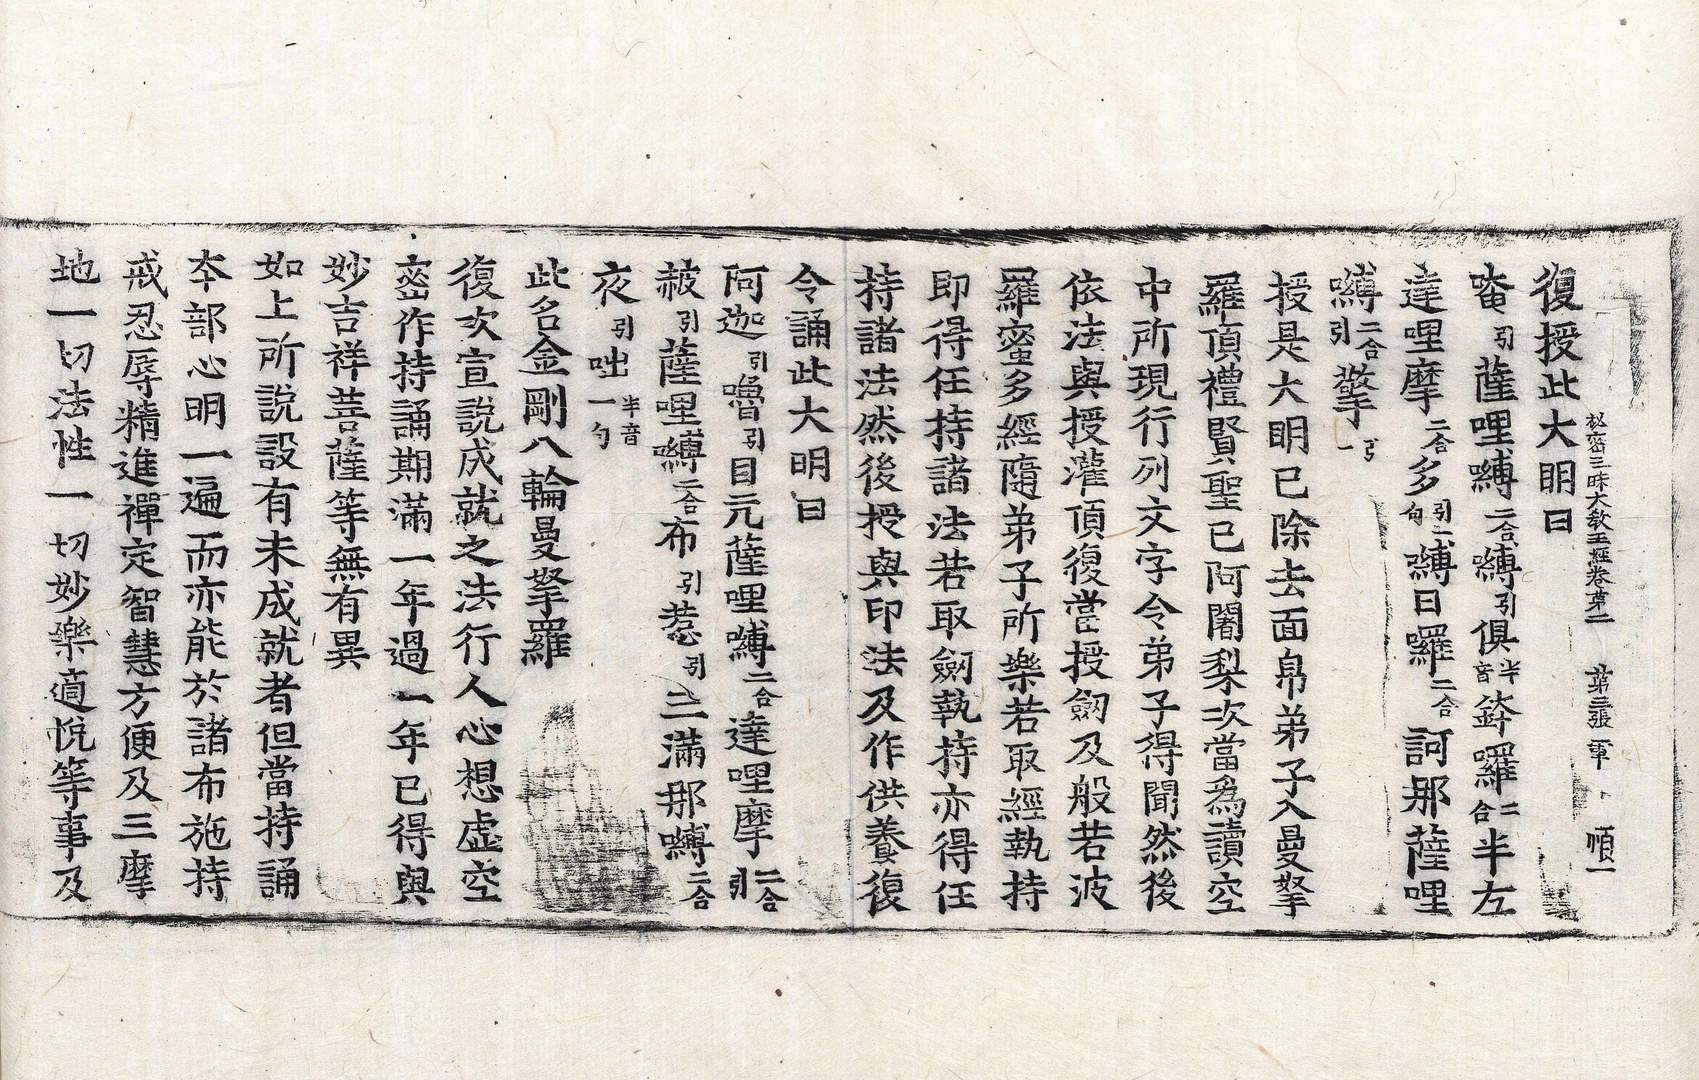 秘密三昧大教王經卷第二 第三張 軍 順一
復授此大明曰
唵引薩哩嚩二合嚩引俱半音鉢囉二合半左
達哩摩二合多引一句嚩日囉二合訶那薩哩
嚩二合引拏引一
授是大明已除去面帛弟子入曼拏
羅頂禮賢聖已阿闍梨次當爲讀空
中所現行列文字令弟子得聞然後
依法與授灌頂復當授劔及般若波
羅蜜多經隨弟子所樂若取經執持
即得任持諸法若取劔執持亦得任
持諸法然後授與印法及作供養復
令誦此大明曰
阿迦引嚕引目元薩哩嚩二合達哩摩二合引
赧引薩哩嚩二合布引惹引三滿那嚩二合
夜引咄半音一句
此名金剛八輪曼拏羅
復次宣説成就之法行人心想虚空
密作持誦期滿一年過一年已得與
妙吉祥菩薩等無有異
如上所説設有未成就者但當持誦
本部心明一遍而亦能於諸布施持
戒忍辱精進禪定智慧方便及三摩
地一切法性一切妙樂適悅等事及